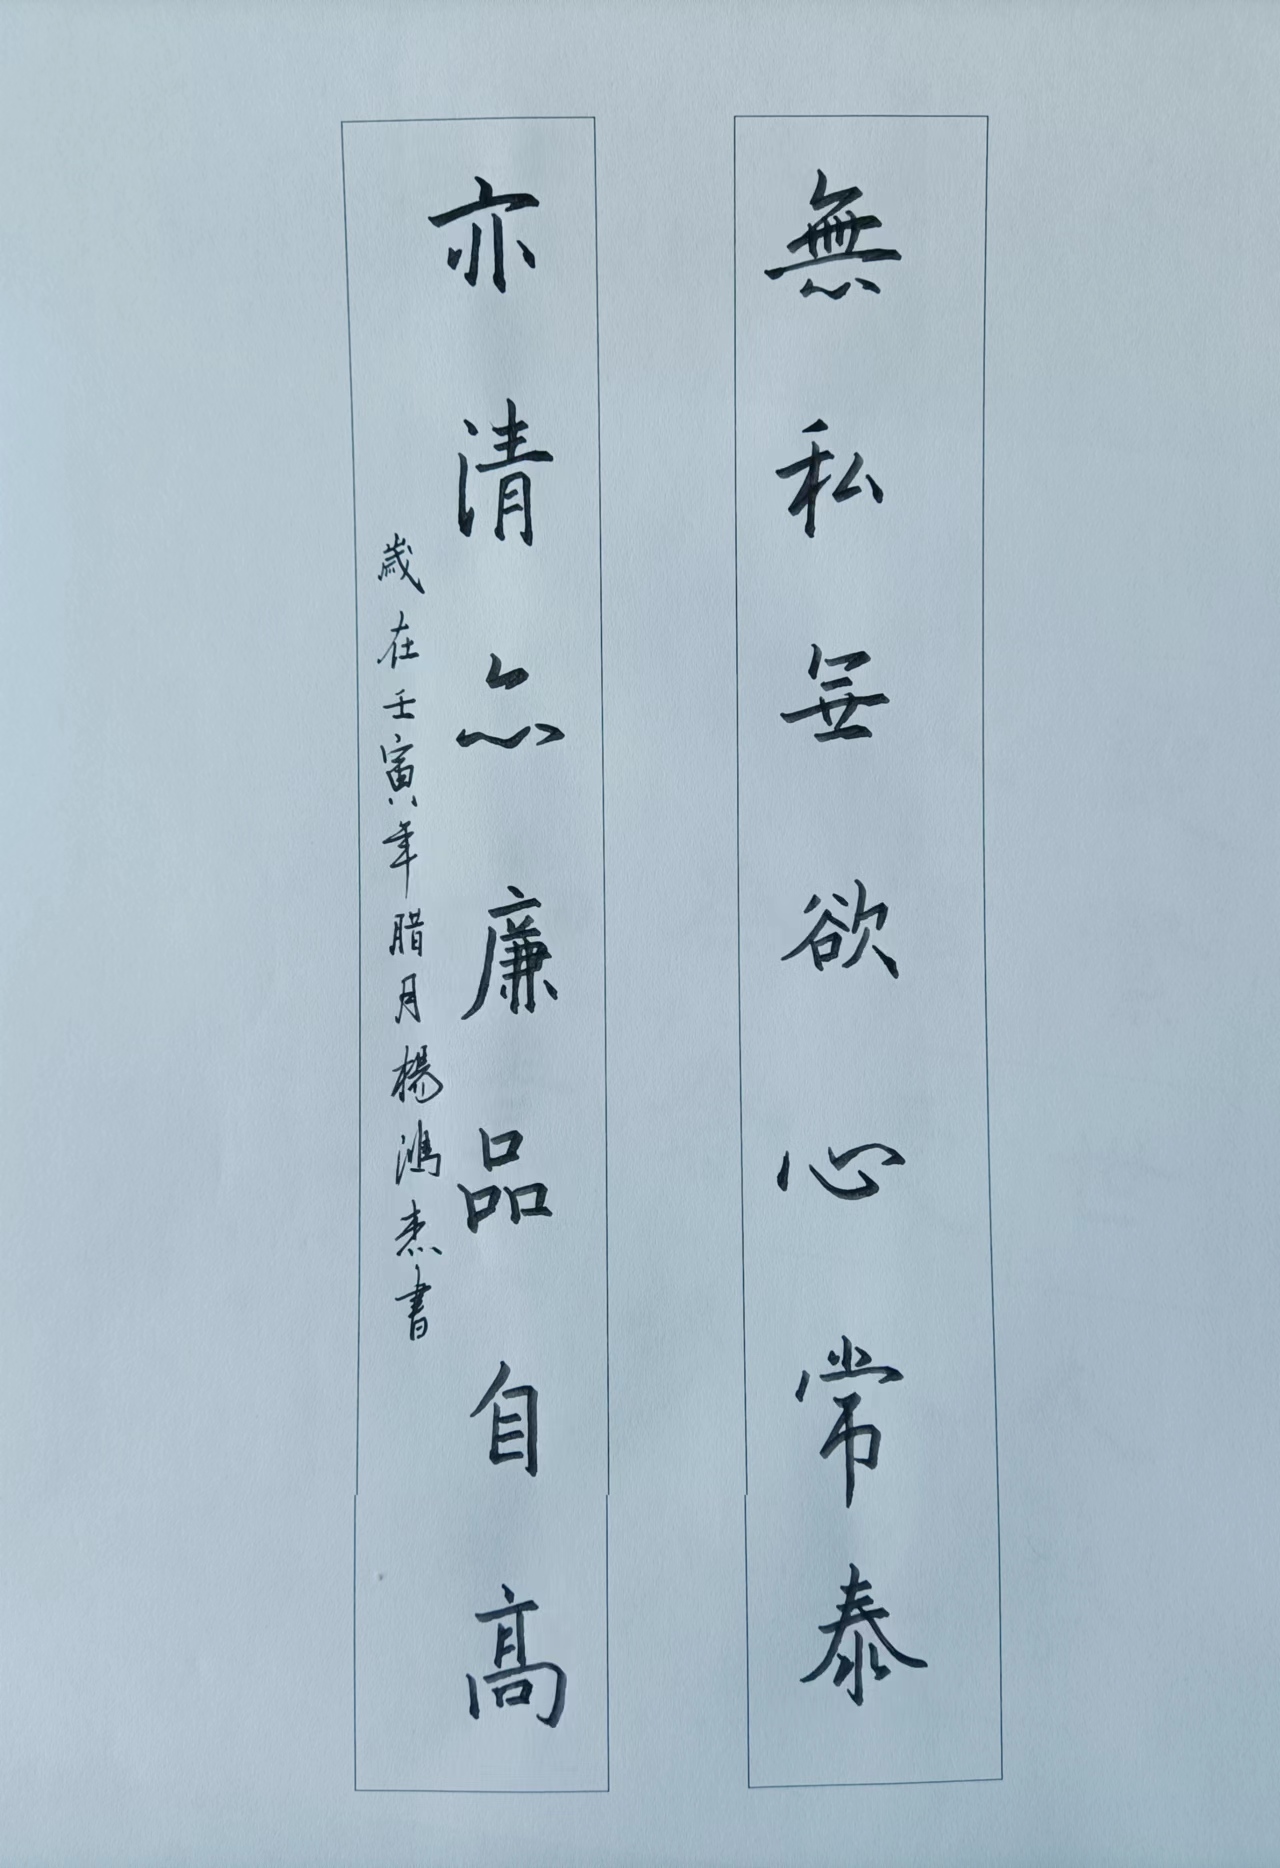 無私無欲心常泰
亦清亦廉品自高
歲在壬寅年腊月楊鴻杰書